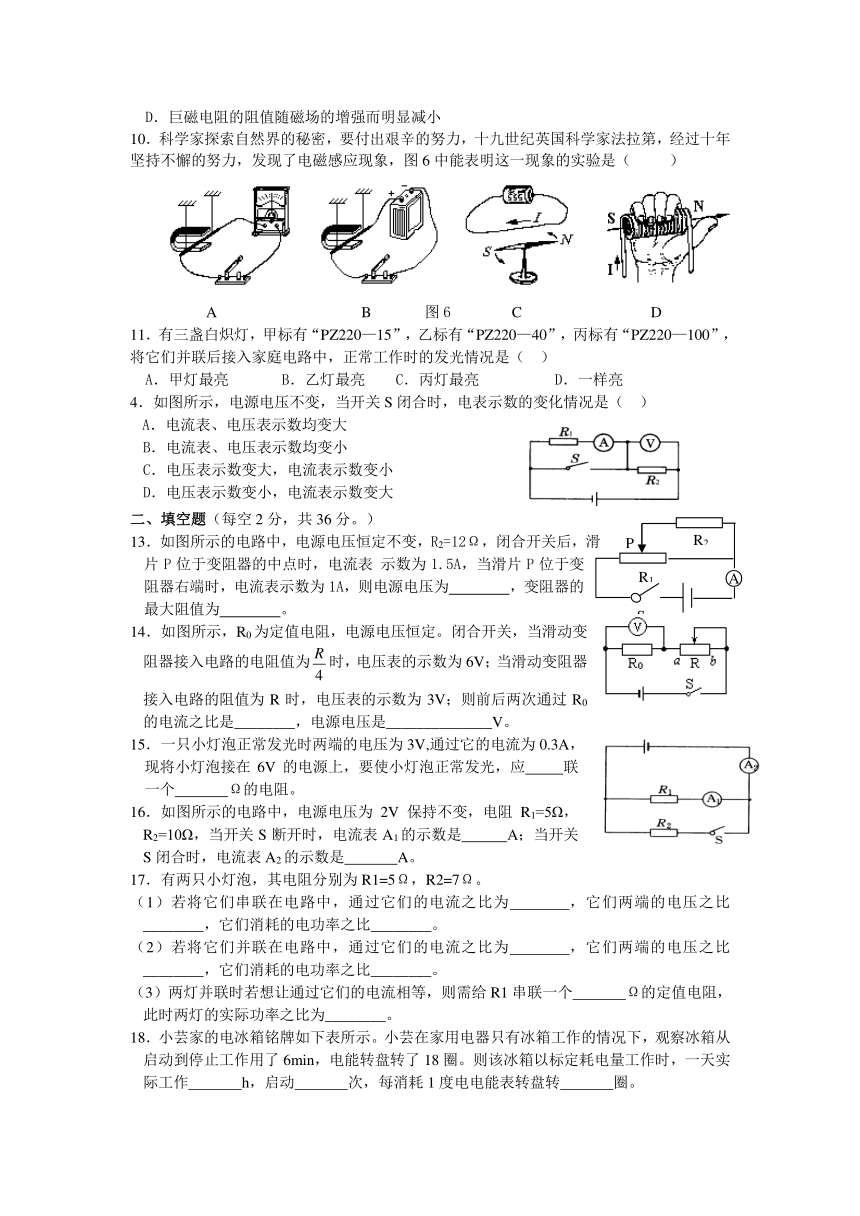 D．巨磁电阻的阻值随磁场的增强而明显减小
10．科学家探索自然界的秘密，要付出艰辛的努力，十九世纪英国科学家法拉第，经过十年
坚持不懈的努力，发现了电磁感应现象，图 6 中能表明这一现象的实验是（　　）
+ −
I
S N
S N
I
A B 图 6 C D
11．有三盏白炽灯，甲标有“PZ220—15”，乙标有“PZ220—40”，丙标有“PZ220—100”，
将它们并联后接入家庭电路中，正常工作时的发光情况是（　）
A．甲灯最亮 B．乙灯最亮 C．丙灯最亮 D．一样亮
4．如图所示，电源电压不变，当开关 S 闭合时，电表示数的变化情况是（　）
A．电流表、电压表示数均变大
B．电流表、电压表示数均变小
C．电压表示数变大，电流表示数变小
D．电压表示数变小，电流表示数变大
R1 A V
S R2
二、填空题（每空 2 分，共 36 分。）
13．如图所示的电路中，电源电压恒定不变，R2=12Ω，闭合开关后，滑
片 P 位于变阻器的中点时，电流表 示数为 1.5A，当滑片 P 位于变
阻器右端时，电流表示数为 1A，则电源电压为________，变阻器的
最大阻值为________。
P R2
R1 A
14．如图所示，R0 为定值电阻，电源电压恒定。闭合开关，当滑动变
阻器接入电路的电阻值为 R/4 时，电压表的示数为 6V；当滑动变阻器
接入电路的阻值为 R 时，电压表的示数为 3V；则前后两次通过 R0
的电流之比是________，电源电压是______________V。
V
R0 a R b
S
15．一只小灯泡正常发光时两端的电压为 3V,通过它的电流为 0.3A，
现将小灯泡接在 6V 的电源上，要使小灯泡正常发光，应_____联
一个_______Ω的电阻。
16．如图所示的电路中，电源电压为 2V 保持不变，电阻 R1=5Ω，
R2=10Ω，当开关 S 断开时，电流表 A1 的示数是______A；当开关
S 闭合时，电流表 A2 的示数是_______A。
A2
R1 A1
R2 S
17．有两只小灯泡，其电阻分别为 R1=5Ω，R2=7Ω。
（1）若将它们串联在电路中，通过它们的电流之比为________，它们两端的电压之比
________，它们消耗的电功率之比________。
（2）若将它们并联在电路中，通过它们的电流之比为________，它们两端的电压之比
________，它们消耗的电功率之比________。
（3）两灯并联时若想让通过它们的电流相等，则需给 R1 串联一个_______Ω的定值电阻，
此时两灯的实际功率之比为________。
18．小芸家的电冰箱铭牌如下表所示。小芸在家用电器只有冰箱工作的情况下，观察冰箱从
启动到停止工作用了 6min，电能转盘转了 18 圈。则该冰箱以标定耗电量工作时，一天实
际工作_______h，启动_______次，每消耗 1 度电电能表转盘转_______圈。